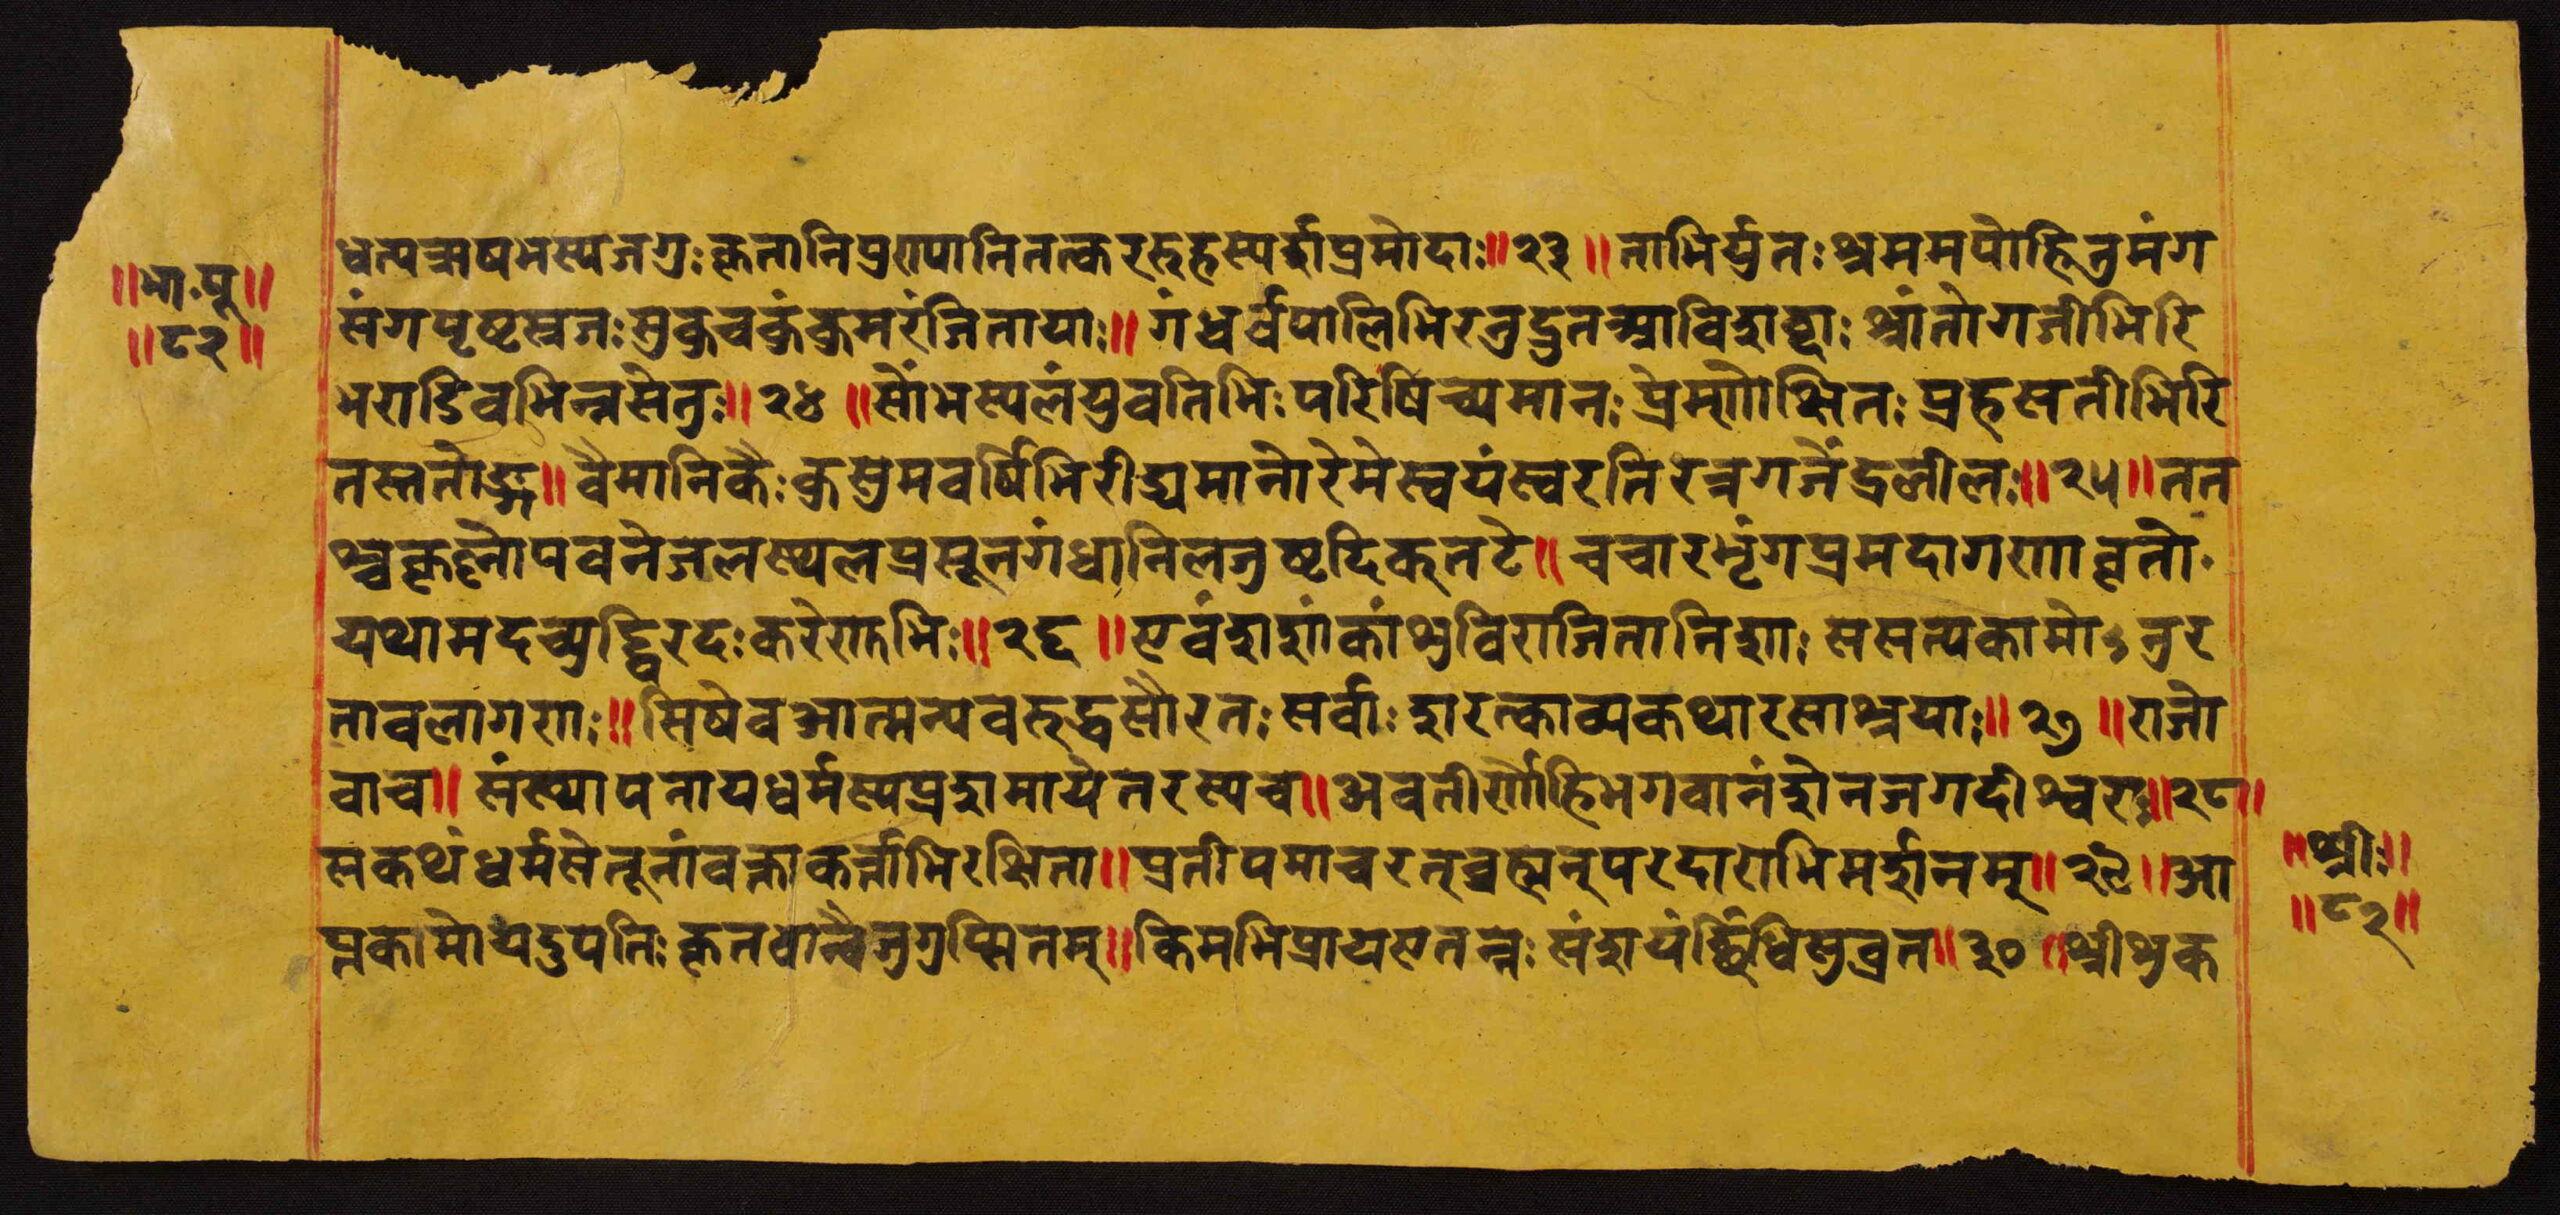 ॥भा॰पू॥
॥८२॥
धत्यऋषभस्यजगुःकृतानिपुण्यानितत्कररुहस्पर्शप्रमोदाः॥२३॥ताभिर्युतःश्रममपोहितुमंग
संगघृष्टस्रजःसुकुचकुंकुमरंजितायाः॥गंधर्वपालिभिरनुद्रुतआविशद्वाःश्रांतोगजीभिरि
भराडिवभिन्नसेतुः॥२४॥सोंभस्यलंयुवतिभिःपरिषिच्यमानःप्रेम्णोक्षितःप्रहसतीभिरि
तस्ततोङ्ग॥वैमानिकैःकुसुमवर्षिभिरीड्यमानोरेमेस्वयंस्वरतिरत्रगजेंद्रलीलः॥२५॥तत
श्चकृष्णोपवनेजलस्थलप्रसूनगंधानिलजुष्टदिक्तटे॥चचारभृंगप्रमदागणावृतो
यथामदच्युद्द्विरदःकरेणुभिः॥२६॥एवंशशांकांशुविराजितानिशाःससत्यकामोऽनुर
तावलागणाः॥सिषेवआत्मन्यवरुद्धसौरतःसर्वाःशरत्काव्यकथारसाश्रयाः॥२७॥राजो
वाच॥संस्थापनायधर्मस्यप्रशमायेतरस्यच॥अवतीर्णोहिभगवानंशेनजगदीश्वरः॥२८॥
सकथंधर्मसेतूनांवक्ताकर्त्ताभिरक्षिता॥प्रतीपमाचरत्ब्रह्मन्परदाराभिमर्शनम्॥२९॥आ
प्तकामोयदुपतिःकृतवान्वैजुगुप्सितम्॥किमभिप्रायएतन्नःसंशयंछिंधिसुव्रत॥३०॥श्रीशुक
॥श्रीः॥
॥८२॥